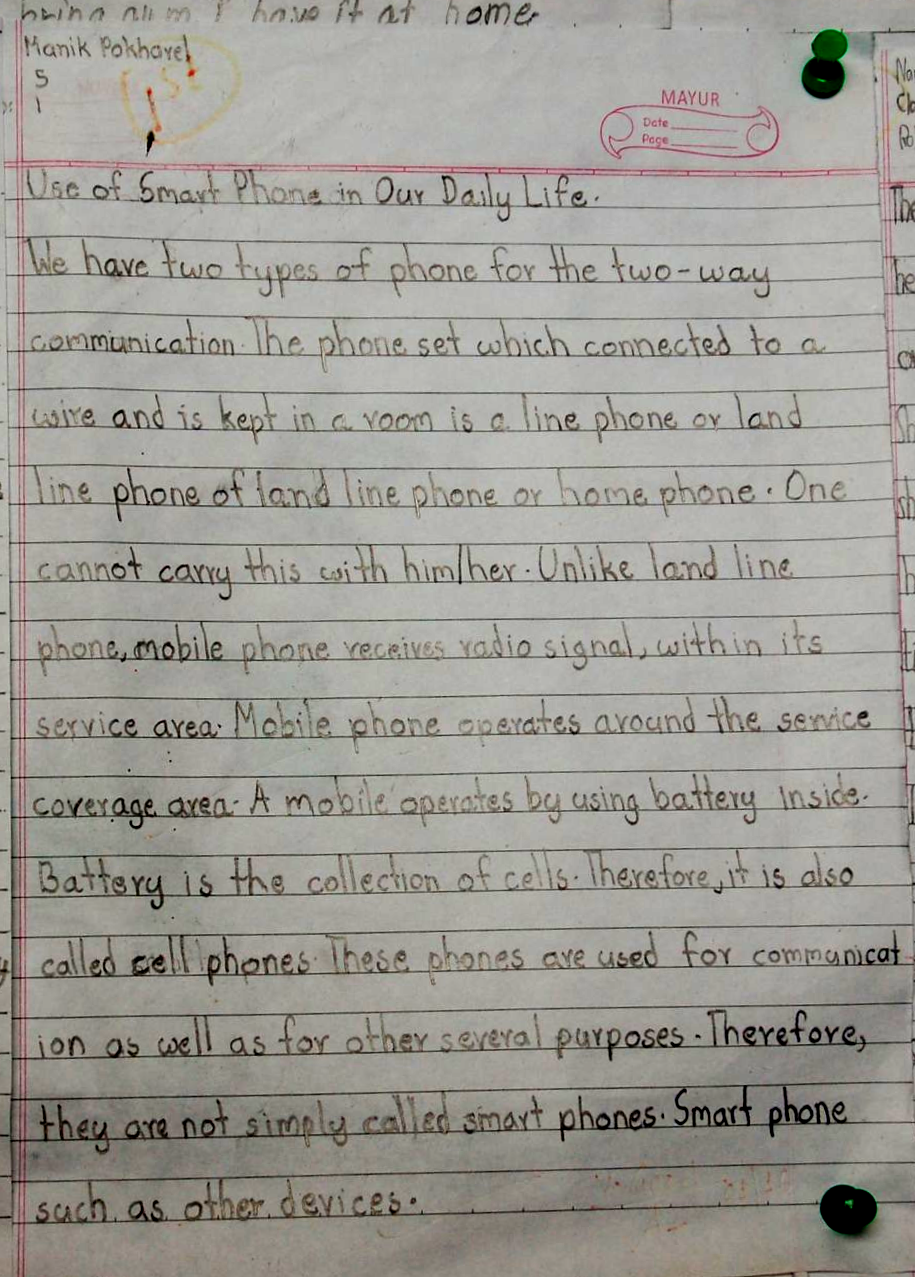 I have it at home
Manik Pokharel
5
1
1st
MAYUR
Date
Page
Use of Smart Phone in Our Daily Life.
We have two types of phone for the two-way
communication. The phone set which connected to a
wire and is kept in a room is a line phone or land
line phone of land line phone or home phone. One
cannot carry this with him/her. Unlike land line
phone, mobile phone receives radio signal, within its
service area. Mobile phone operates around the service
coverage area. A mobile operates by using battery inside.
Battery is the collection of cells. Therefore, it is also
called cell phones. These phones are used for communicat
ion as well as for other several purposes. Therefore,
they are not simply called smart phones. Smart phone
such as other devices.